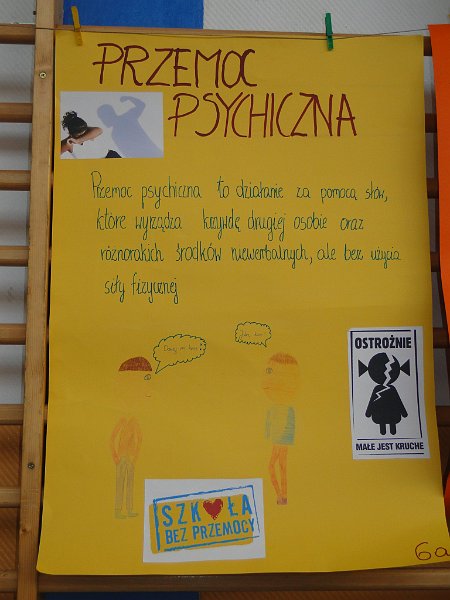 PRZEMOC
PSYCHICZNA
Przemoc psychiczna to działanie za pomocą słów,
które wyrządza krzywdę drugiej osobie oraz
różnorakich środków niewerbalnych, ale bez użycia
siły fizycznej
OSTROŻNIE
MAŁE JEST KRUCHE
SZKOŁA
BEZ PRZEMOCY
6a